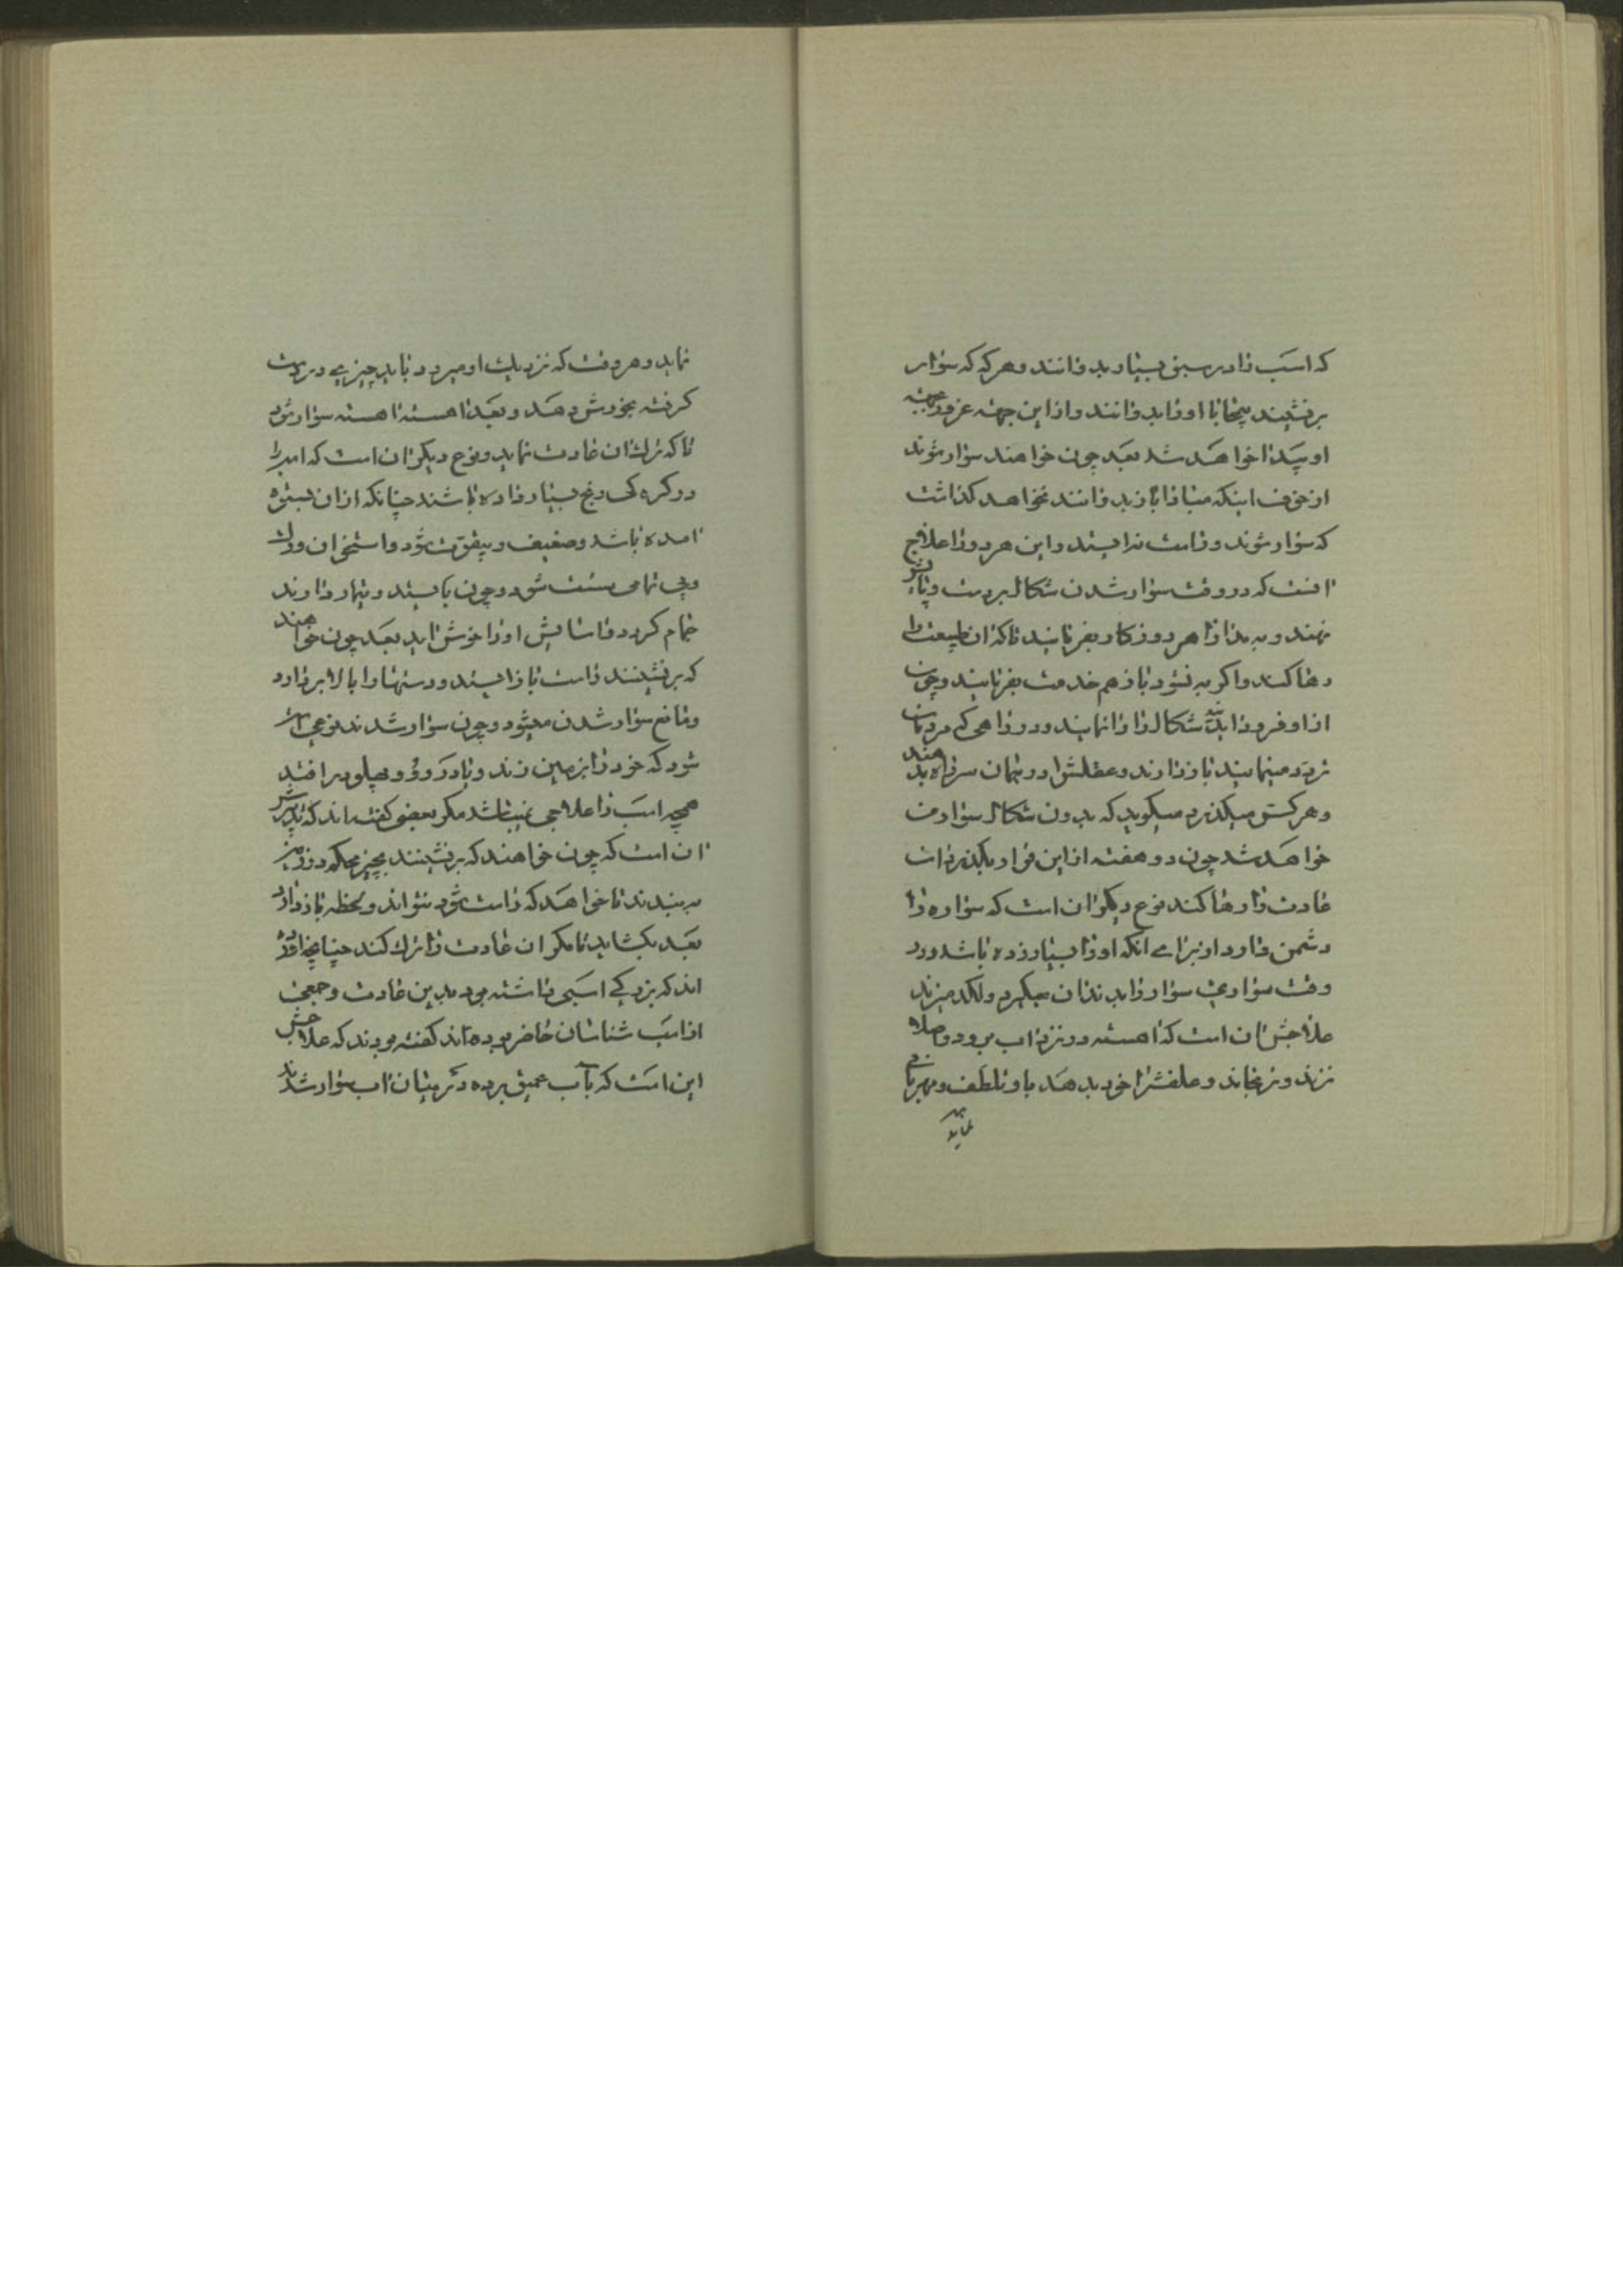 که اسب را در سبق بسیار بد وانند و هرکه که سوار
برنشیند بیجابا او را بد وانند و از این جهت
او پیدا خواهد شد بعد چون خواهند سوار شوند
از خوف اینکه مبادا باز بد وانند نخواهد کذاشت
که سوار شوند و راست نه ایستد و این هر دو را علاج
انست که در وقت سوار شدن شکال بر دست و پایش
نهند و به مدارا هر روز کار بفرمایند تا که ان طبیعت را
رها کند و اکر به نشود باز هم خدمت بفرمایند و چون
از او فرود ایند شکال را وا نمایند و در راهی که مردمان
تردد مینمایند باز دارند و عقلش را در بهمان سر راه بدهند
و هر کس میکذرد میکوید که بدون شکال سوار من
خواهد شد چون دو هفته از این قرار بکذرد ان
عادت را رها کند نوع دیکر ان است که سواره را
دشمن دارد از برای انکه او را بسیار زده باشد و در
وقت سواری سوار را بدندان میکیرد و لکد میزند
علاجش ان است که اهسته در نزد اسب برود و اصلا
نزند و نرنجاند و علفش را خود بدهد با و تلطف و مهربانی
نماید
نماید و هر وقت که نزدیک او میرود باید چیزی در دست
کرفته بخوردش دهد و بعد اهسته اهسته سوار شود
تا که ترک ان عادت نماید و نوع دیکر ان است که اسب را
در کره کی رنج بسیار داده باشند چنانکه از ان بستوه
امده باشد و ضعیف و بیقوت شود و استخوان و رک
و پی تمامی سست شود و چون بایستد و تیمار دارند
خمام کردد و اسایش او را خوش اید بعد چون خواهند
که برنشینند راست باز ایستد و دستها را بالا بردارد
و مانع سوار شدن میشود و چون سوار شدند نوعی
شود که خود را بر زمین زند و یا در رود و بپهلو در افتد
همچه اسب را علاجی نمیباشد مکر بعضی کفته اند که تدبیرش
ان است که چون خواهند که برنشینند بچیز محکم در زمین
به بندند تا خواهد که راست شود نتواند و لحظه باز دارد
بعد بکشاید تا مکر ان عادت را ترک کند چنانچه اورده
اند که بزرکی اسبی داشته بود بدین عادت و جمعی
از اسب شناسان حاضر بوده اند کفته بودند که علاجش
این است که باب عمیق برده در میان اب سوار شدند